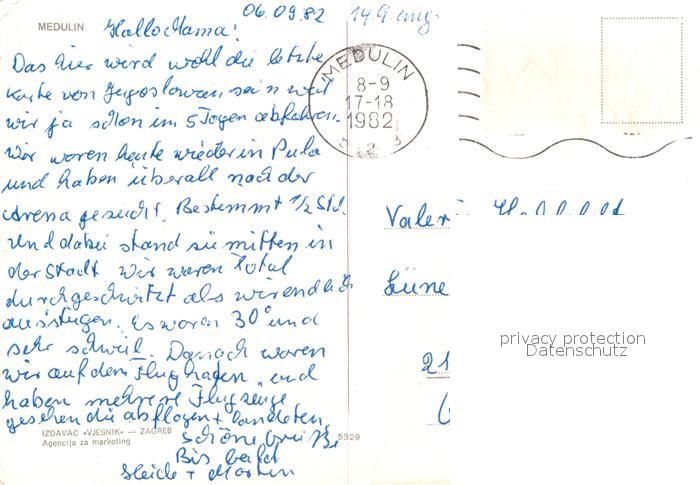 06.09.82 14.9. ang.
MEDULIN
Hallo Mama!
Das hier wird wohl die letzte
Karte von Jugoslawien sein weil
wir ja schon in 5 Tagen abfahren.
Wir waren heute wieder in Pula
und haben überall nach der
Arena gesucht. Bestemmt 1/2 Std.
Und dabei stand sie mitten in
der Stadt wir waren Total
durchgeschwitzt als wir endlich
ausstiegen. Es waren 30° und
sehr schwül. Danach waren
wir auf dem Flughafen und
haben mehrere Flugzeuge
gesehen die abflogen + landeten
schöne Grüße
Bis bald
Heide + Martin
IZDAVAČ «VJESNIK» — ZAGREB
Agencija za marketing
5329
MEDULIN
8-9
17-18
1982
Valeri
Lüne
21
privacy protection
Datenschutz